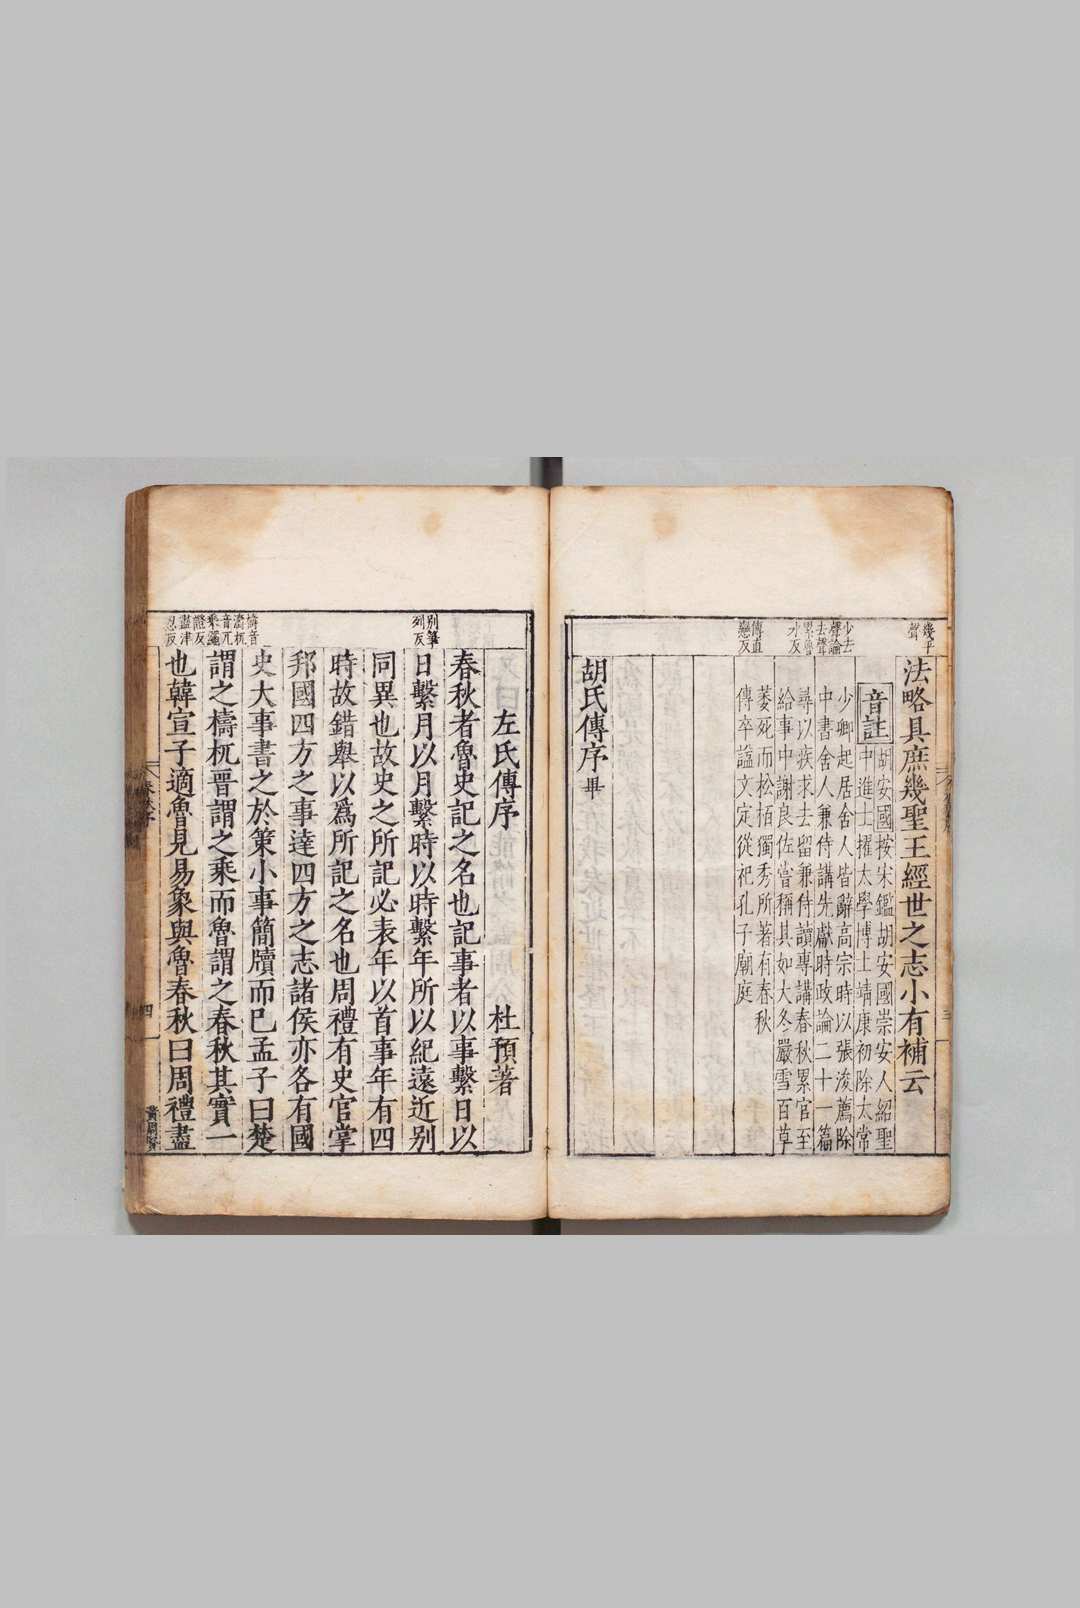 幾平
聲
法略具庶幾聖王經世之志小有補云
音註
胡安國按宋鑑胡安國崇安人紹聖
中進士擢太學博士靖康初除太常
少去
聲論
去聲
累魯
水反
少卿起居舍人皆辭高宗時以張浚薦除
中書舍人兼侍講先獻時政論二十一篇
尋以疾求去留兼侍讀專講春秋累官至
給事中謝良佐嘗稱其如大冬嚴雪百草
萎死而松栢獨秀所著有春秋
傳直
戀反
傳卒謚文定從祀孔子廟庭
胡氏傳序畢
左氏傳序
杜預著
春秋者魯史記之名也記事者以事繫日以
別筆
列反
日繫月以月繫時以時繫年所以紀遠近別
同異也故史之所記必表年以首事年有四
時故錯舉以爲所記之名也周禮有史官掌
邦國四方之事達四方之志諸侯亦各有國
史大事書之於策小事簡牘而已孟子曰楚
檮音
濤杌
音兀
乘繩
證反
盡津
忍反
謂之檮杌晉謂之乘而魯謂之春秋其實一
也韓宣子適魯見易象與魯春秋曰周禮盡
春秋序
四